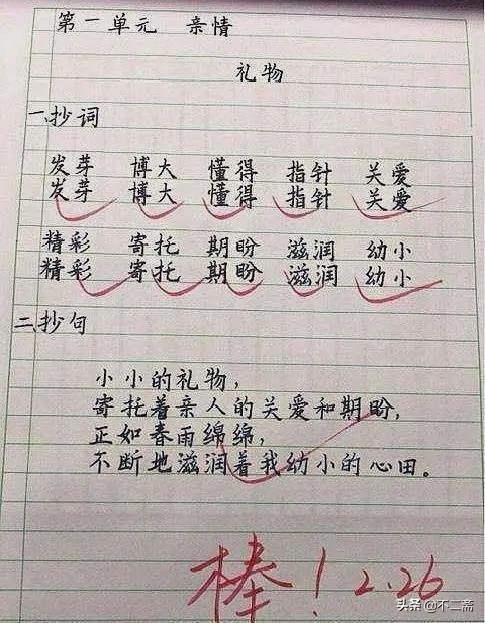 第一单元 亲情
礼物
一、抄词
发芽 博大 懂得 指针 关爱
发芽 博大 懂得 指针 关爱
精彩 寄托 期盼 滋润 幼小
精彩 寄托 期盼 滋润 幼小
二、抄句
小小的礼物，
寄托着亲人的关爱和期盼，
正如春雨绵绵，
不断地滋润着我幼小的心田。
棒！2.26
头条 @不二斋